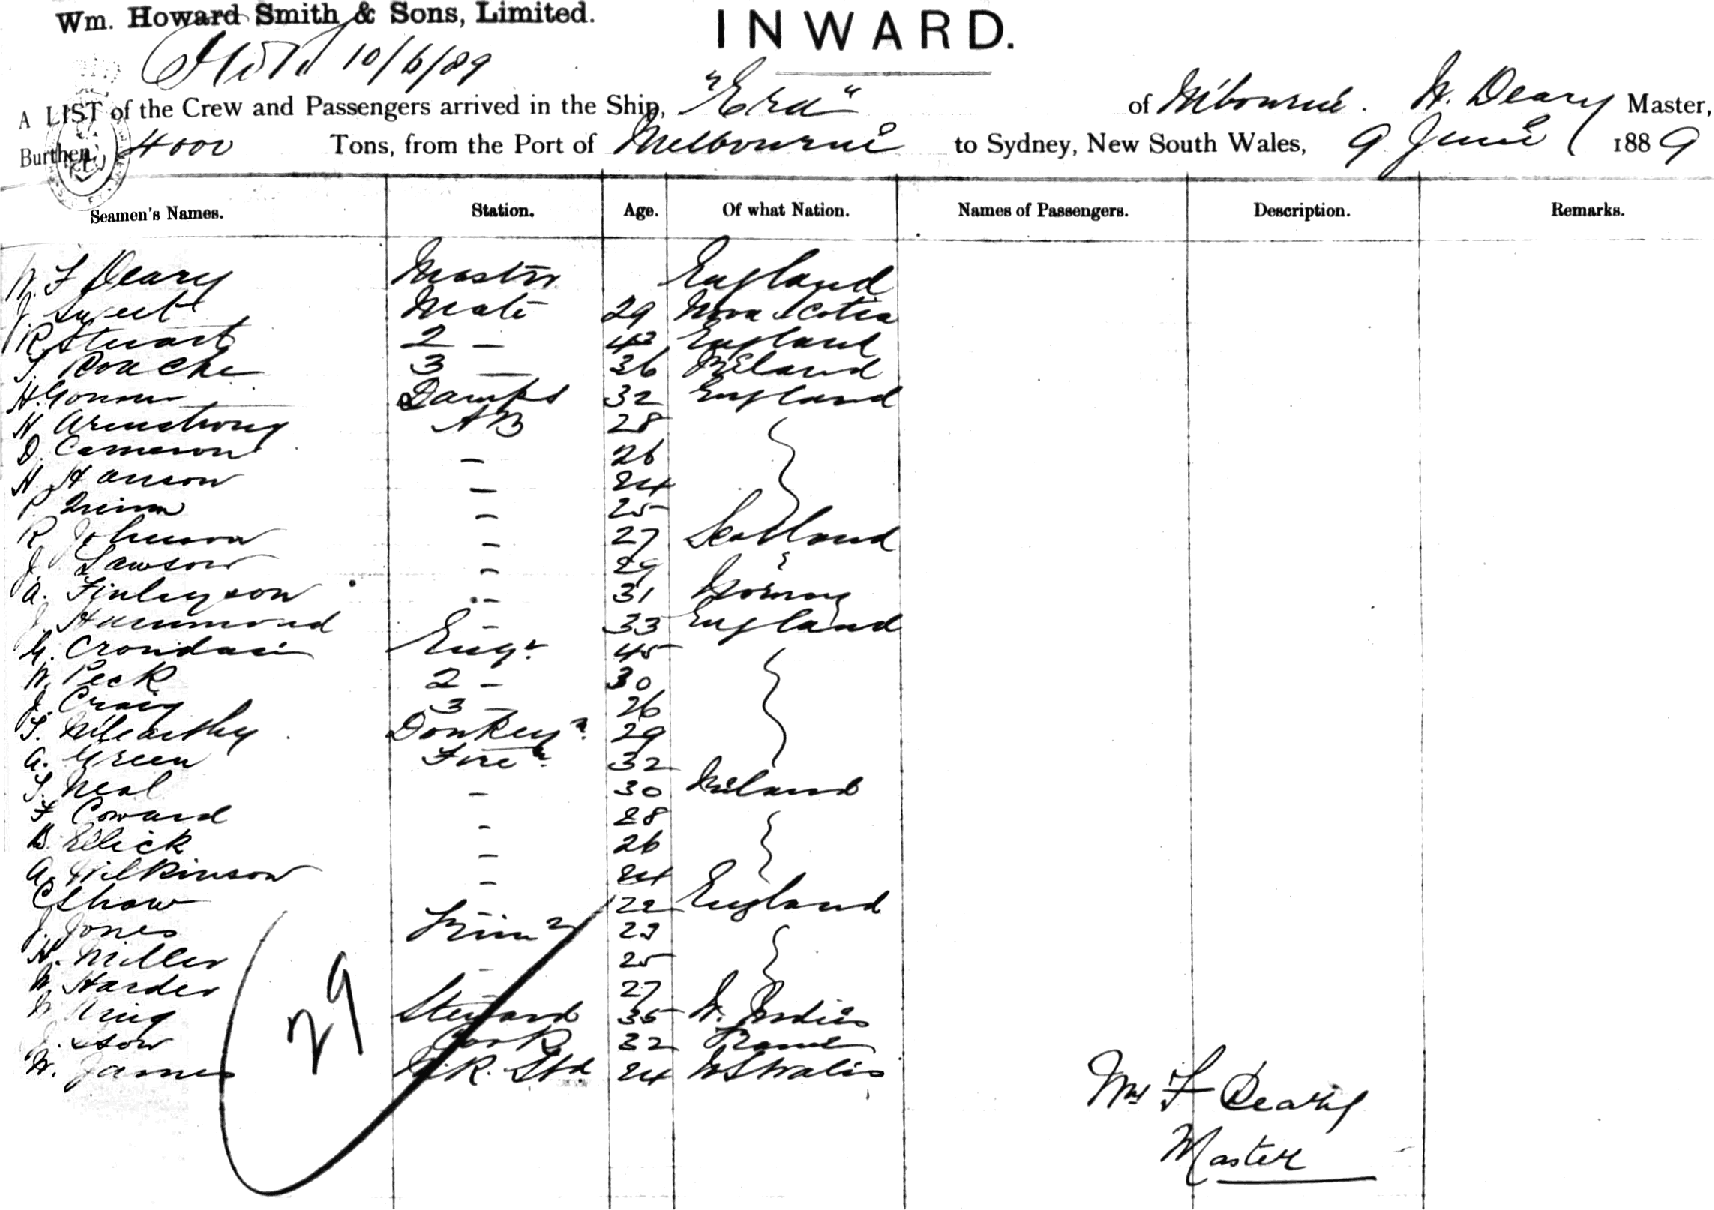 Wm. Howard Smith & Sons, Limited.
INWARD.
10/6/89
A LIST of the Crew and Passengers arrived in the Ship, "Era" of Melbourne. W. Deary Master,
Burthen, 4000 Tons, from the Port of Melbourne to Sydney, New South Wales, 9 June 1889
Seamen's Names. Station. Age. Of what Nation. Names of Passengers. Description. Remarks.
W. F Deary Master England
J Sweet Mate 29 Nova Scotia
R Stewart 2 — 42 England
T Roache 3 — 36 Ireland
H. Lamps 32 England
H Armstrong AB 28
D. Cameron — 26
H Hanson — 24
P. Quinn — 25
R Johnson — 27 Scotland
J. Lawson — 29
A. Finlayson — 31
J Hammond — 33 England
G. Crondace Engr. 45
W. Peck 2 — 30
J. Craig 3 — 26
T. McCarthy Donkeyn. 29
A. Green Firen. 32
T. Neal — 30 Ireland
F Coward — 28
B. Ellick — 26
A. Wilkinson — 24
C Shaw 22 England
J. Jones Trimr 23
H. Miller — 25
W Harder 27
W King Steward 35 W. Indies
Cook 32 France
W. James M.R. Std 24 Australia
29
Wm F Deary
Master